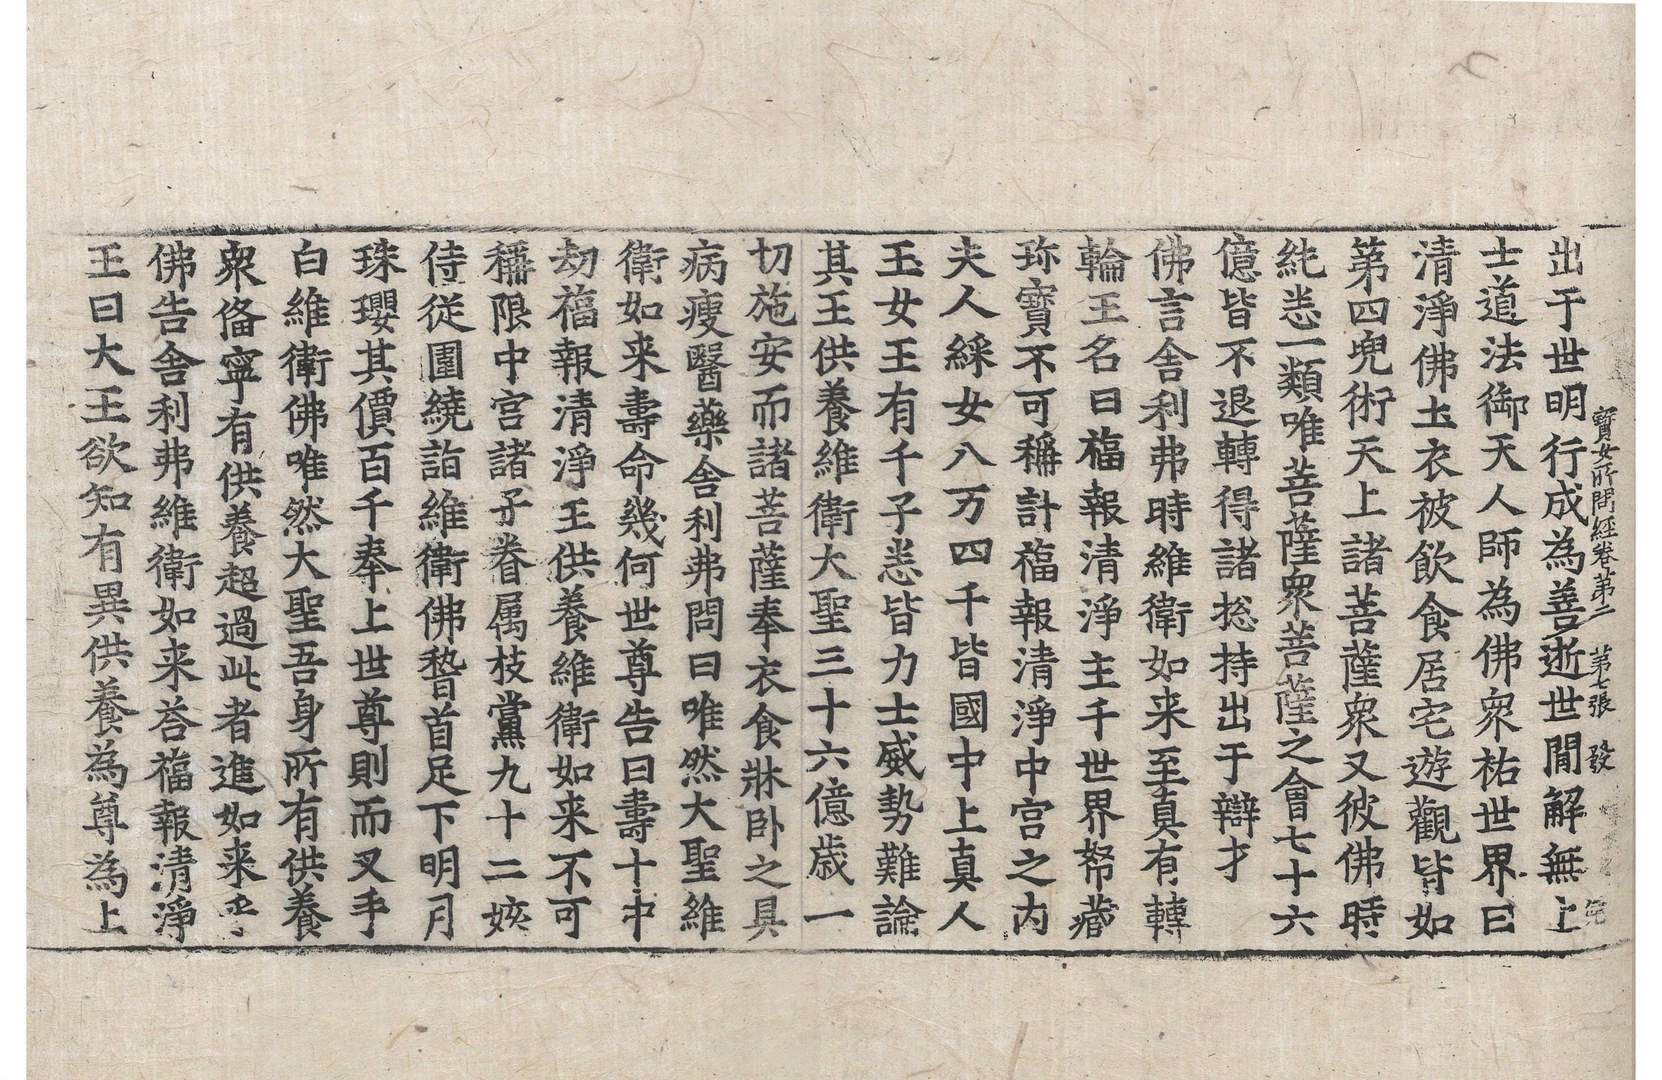 寶女所問經卷第二　第七張　發
出于世明行成為善逝世閒解無上
士道法御天人師為佛衆祐世界曰
清淨佛土衣被飲食居宅遊觀皆如
第四兜術天上諸菩薩衆又彼佛時
純恙一類唯菩薩衆菩薩之會七十六
億皆不退轉得諸捴持出于辯才
佛言舍利弗時維衛如来至真有轉
輪王名曰福報清淨主千世界帑藏
珎寶不可稱計福報清淨中宫之内
夫人綵女八万四千皆國中上真人
玉女王有千子悉皆力士威勢難論
其王供養維衛大聖三十六億歳一
切施安而諸菩薩奉衣食牀卧之具
病瘦醫藥舍利弗問曰唯然大聖維
衛如来壽命幾何世尊告曰壽十中
劫福報清淨王供養維衛如来不可
稱限中宫諸子眷属枝黨九十二姟
侍從圍繞詣維衛佛稽首足下明月
珠瓔其價百千奉上世尊則而叉手
白維衛佛唯然大聖吾身所有供養
衆俻寧有供養超過此者進如来乎
佛告舍利弗維衛如来荅福報清淨
王曰大王欲知有異供養為尊為上